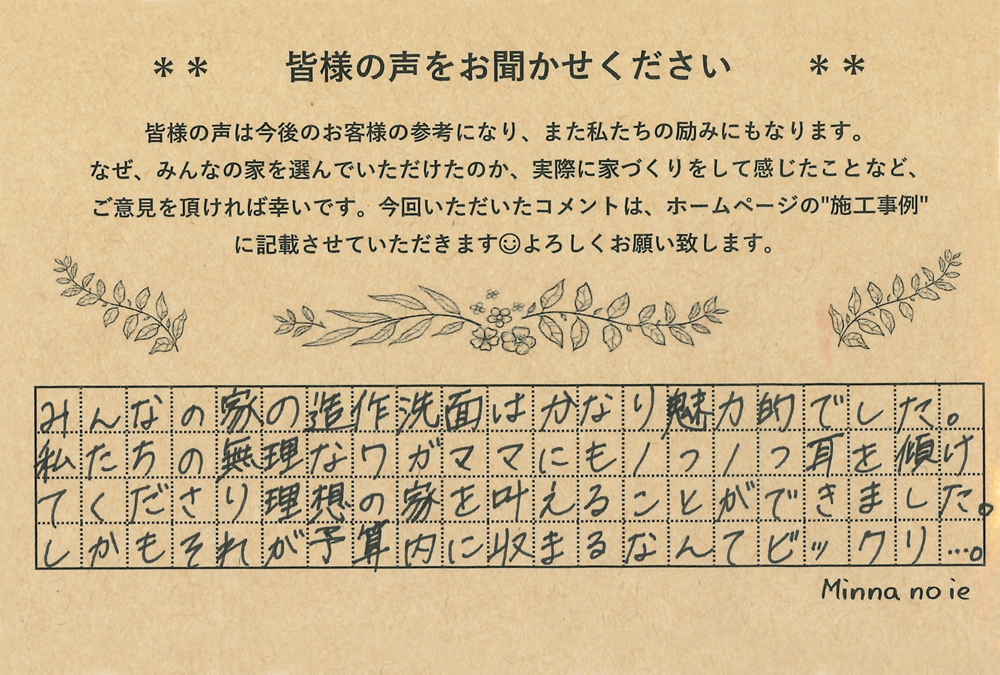 ** 皆様の声をお聞かせください **
皆様の声は今後のお客様の参考になり、また私たちの励みにもなります。
なぜ、みんなの家を選んでいただけたのか、実際に家づくりをして感じたことなど、
ご意見を頂ければ幸いです。今回いただいたコメントは、ホームページの"施工事例"
に記載させていただきます☺よろしくお願い致します。
みんなの家の造作洗面はかなり魅力的でした。
私たちの無理なワガママにも1つ1つ耳を傾け
てくださり理想の家を叶えることができました。
しかもそれが予算内に収まるなんてビックリ…。
Minna no ie